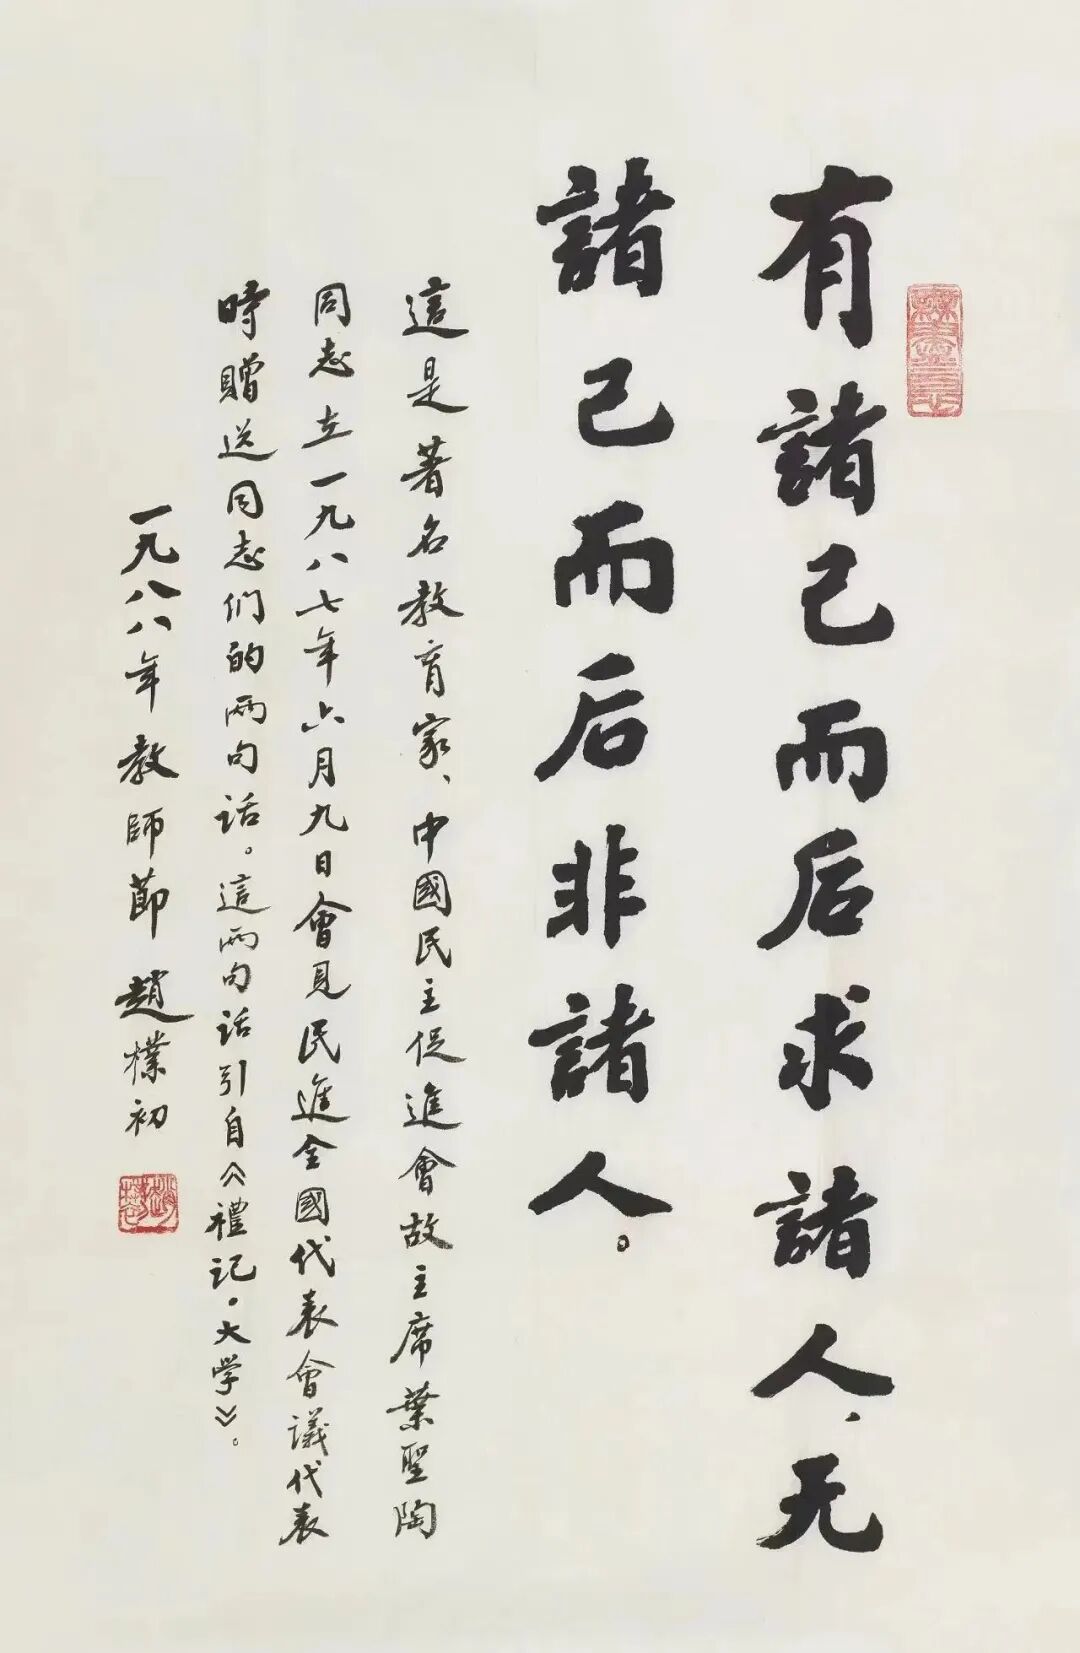 有諸己而后求諸人，无
諸己而后非諸人。
這是著名教育家、中國民主促進會故主席葉聖陶
同志在一九八七年六月九日會見民進全國代表會議代表
時贈送同志们的两句话。這两句话引自《禮記·大学》。
一九八八年教師節 趙樸初